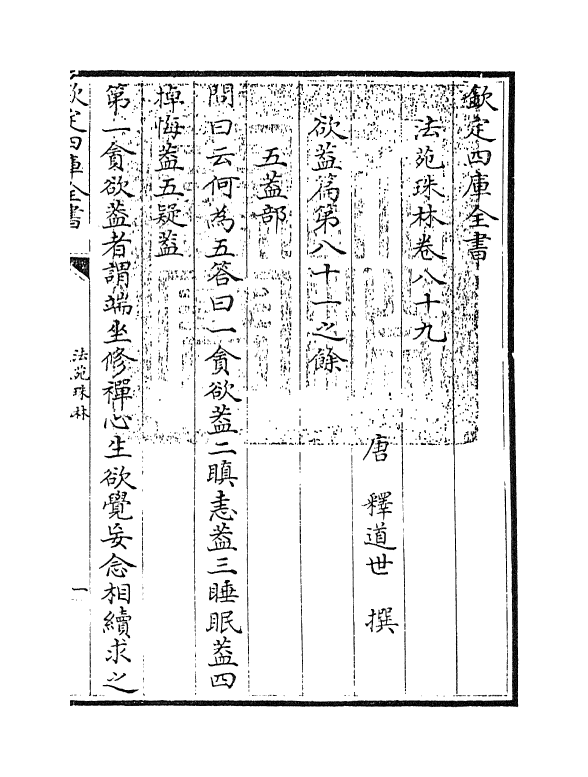 欽定四庫全書
法苑珠林卷八十九
唐 釋道世 撰
欲葢篇第八十一之餘
五葢部
問曰云何為五答曰一貪欲葢二瞋恚葢三睡眠葢四
掉悔葢五疑葢
第一貪欲葢者謂端坐修禪心生欲覺妄念相續求之
欽定四庫全書
法苑珠林
一